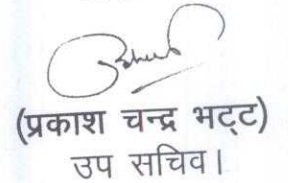 (प्रकाश चन्द्र भट्ट)
उप सचिव।